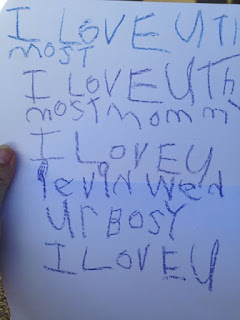 I LOVE U Th
most
I LOVE U Th
most momm
I LOVE U
levin wen
Ur BOSY
I LOVE U